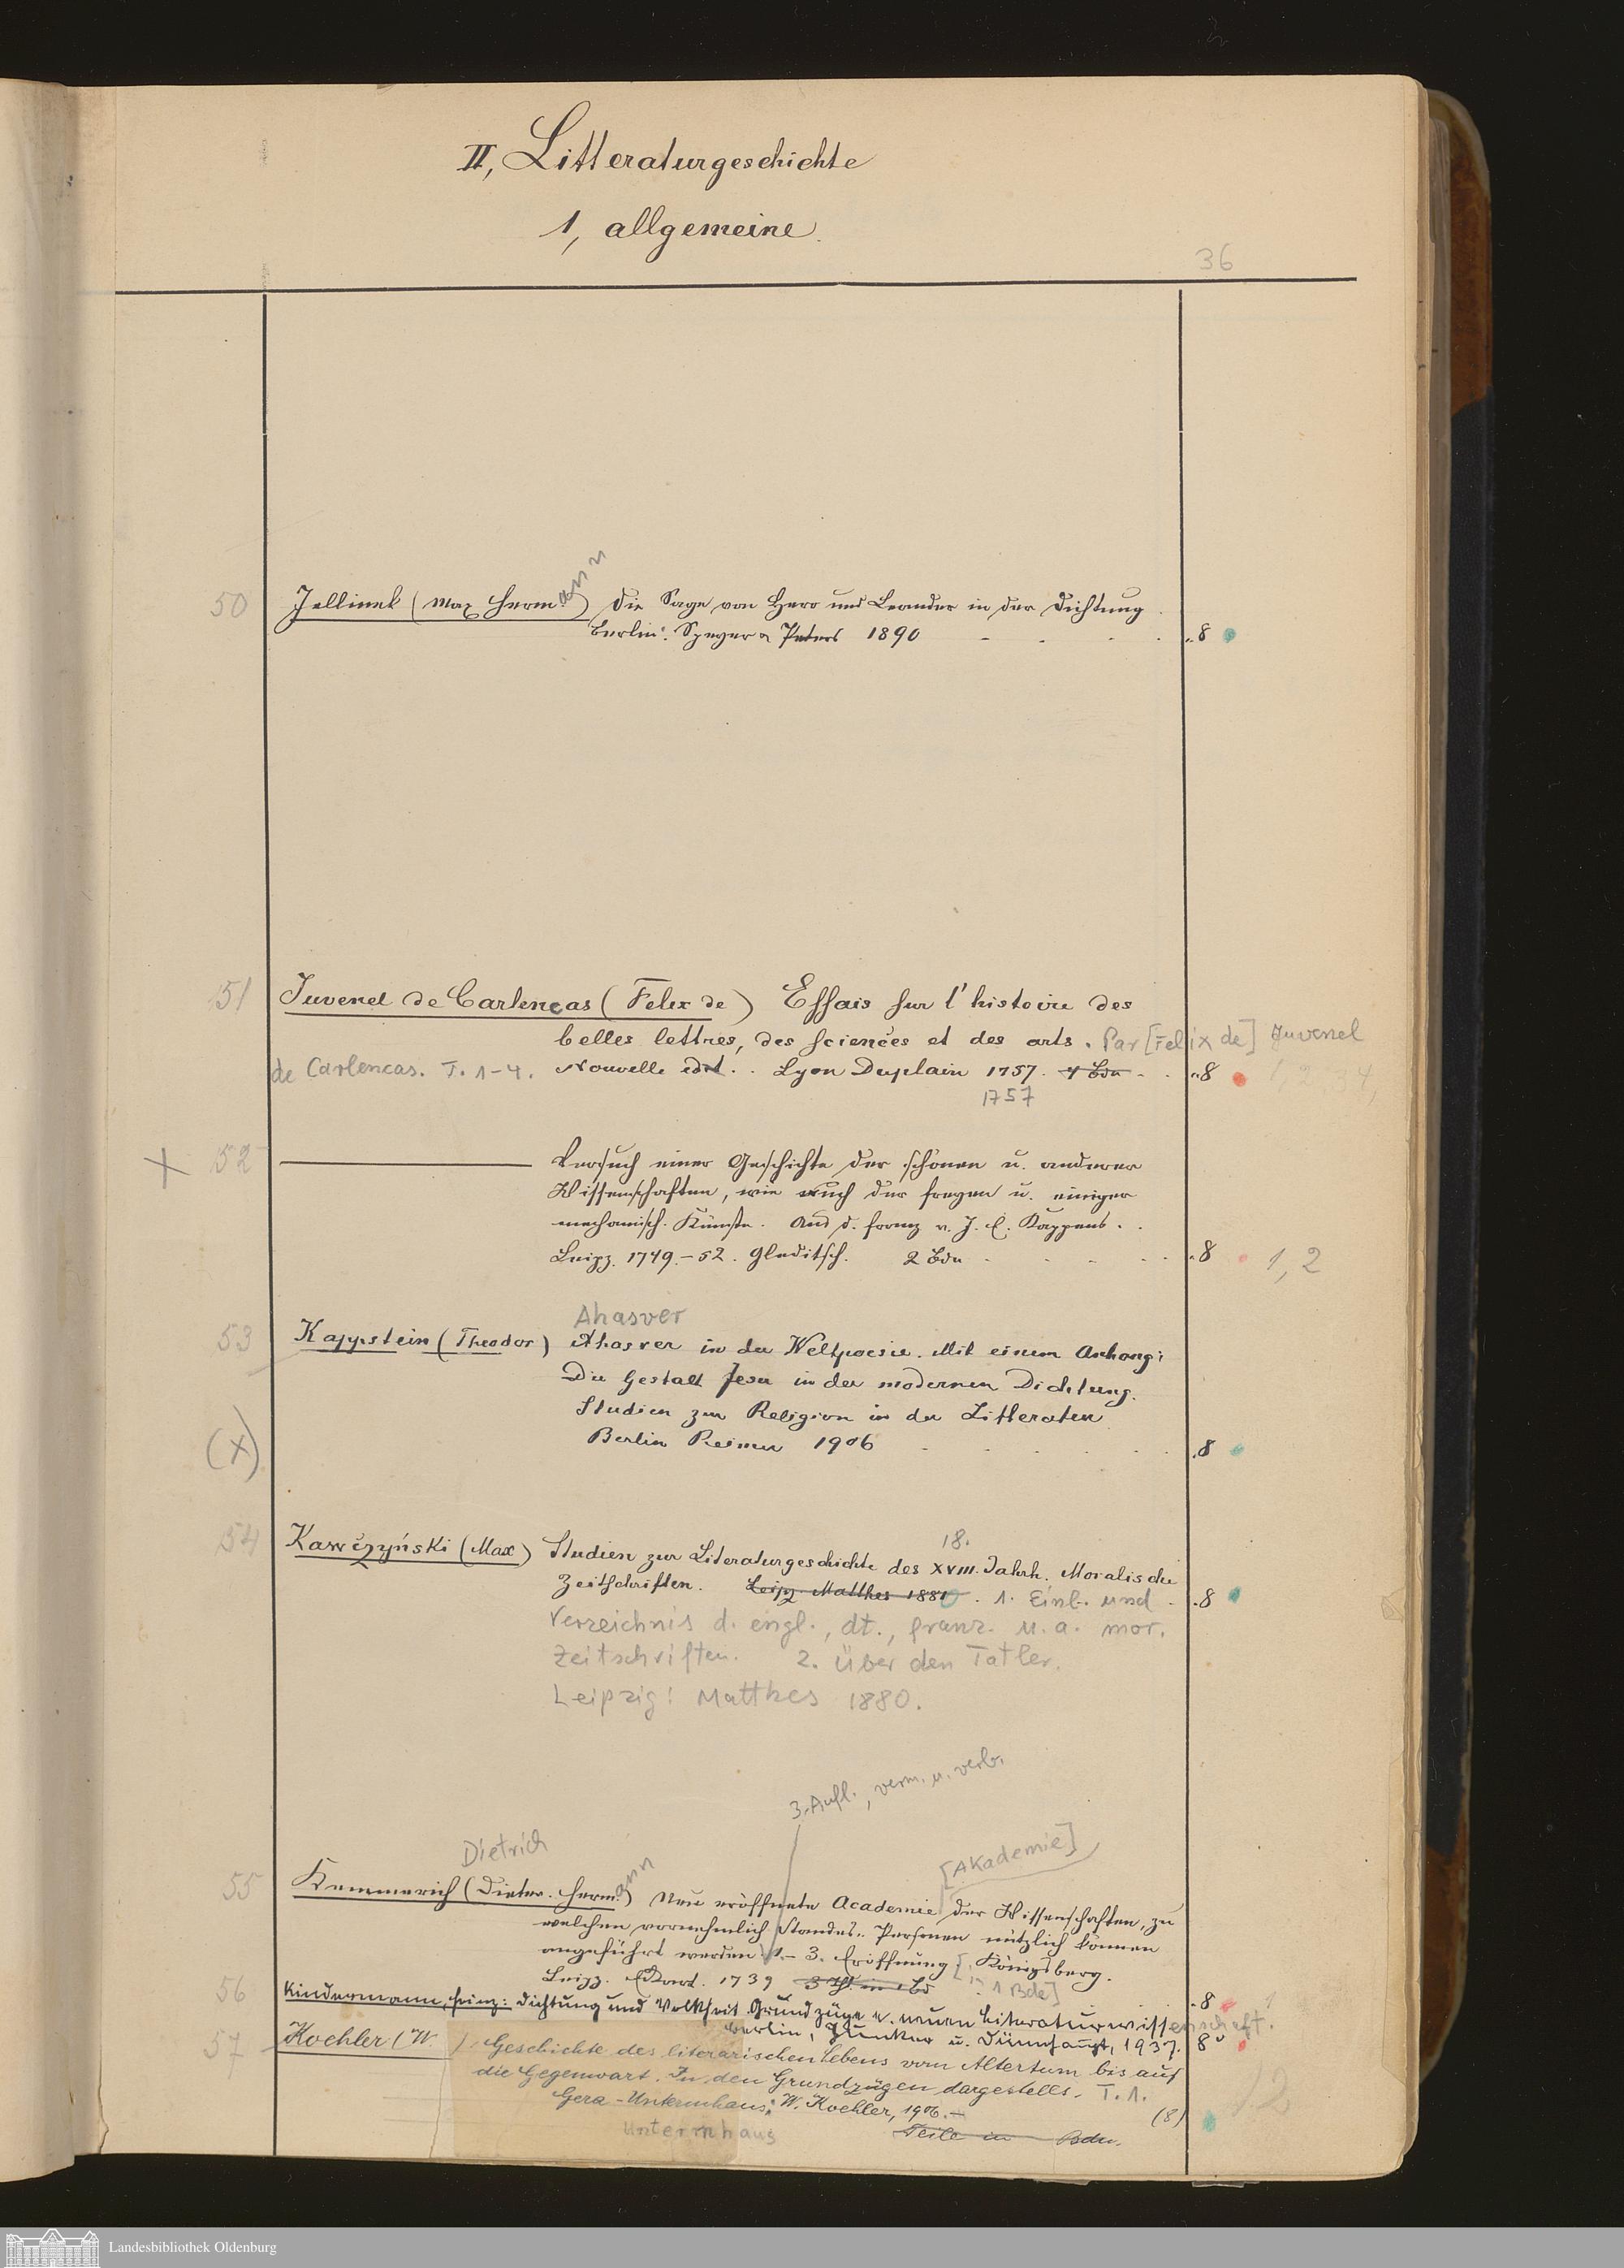 II, Litteraturgeschichte
1, allgemeine.
36
50 Jellinek (Max Hermann) Die Sage von Hero und Leander in der Dichtung.
Berlin: Speyer & Peters 1890 8
51 Juvenel de Carlencas (Felix de) Essais sur l'histoire des
belles lettres, des sciences et des arts. Par [Felix de] Juvenel
de Carlencas. T. 1-4. Nouvelle edit. Lyon Duplain 1757. 4 Bde 8 1, 2 3 4,
1757
+ 52 Versuch einer Geschichte der schönen u. anderer
Wissenschaften, wie auch der freyen u. einiger
mechanisch. Künste. Aus d. Franz v. J. E. Kappens.
Leipz. 1749.-52. Gleditsch. 2 Bde 8 1, 2
Ahasver
53 Kappstein (Theodor) Ahasver in der Weltpoesie. Mit einem Anhang:
Die Gestalt Jesu in der modernen Dichtung.
Studien zur Religion in der Litteratur
(x) Berlin Reimer 1906 8
18.
54 Kawczyński (Max) Studien zur Literaturgeschichte des XVIII. Jahrh. Moralische
Zeitschriften. Leipz. Matthes 1880. 1. Einl. und 8
Verzeichnis d. engl., dt., franz. u. a. mor.
Zeitschriften. 2. Über den Tatler.
Leipzig: Matthes 1880.
3. Aufl., verm. u. verb.
Dietrich
[Akademie]
55 Kemmerich (Dieter. Hermann) Neu eröffnete Academie der Wissenschaften, zu
welchen vornehmlich Standes-Personen nützlich können
angeführt werden 1.-3. Eröffnung [. Königsberg.
Leipz. Eckart. 1739 3 Th. in 1 Bd in 1 Bde] 8 1
56 Kindermann, Heinz: Dichtung und Volkheit. Grundzüge e. neuen Literaturwissenschaft.
Berlin, Junker u. Dünnhaupt, 1937. 8°
57 Koehler (W. ) Geschichte des literarischen Lebens vom Altertum bis auf
die Gegenwart. In den Grundzügen dargestellt. T. 1.
Gera-Untermhaus: W. Koehler, 1906.- (8) 1.2
Untermhaus Teile in Bdn.
Landesbibliothek Oldenburg